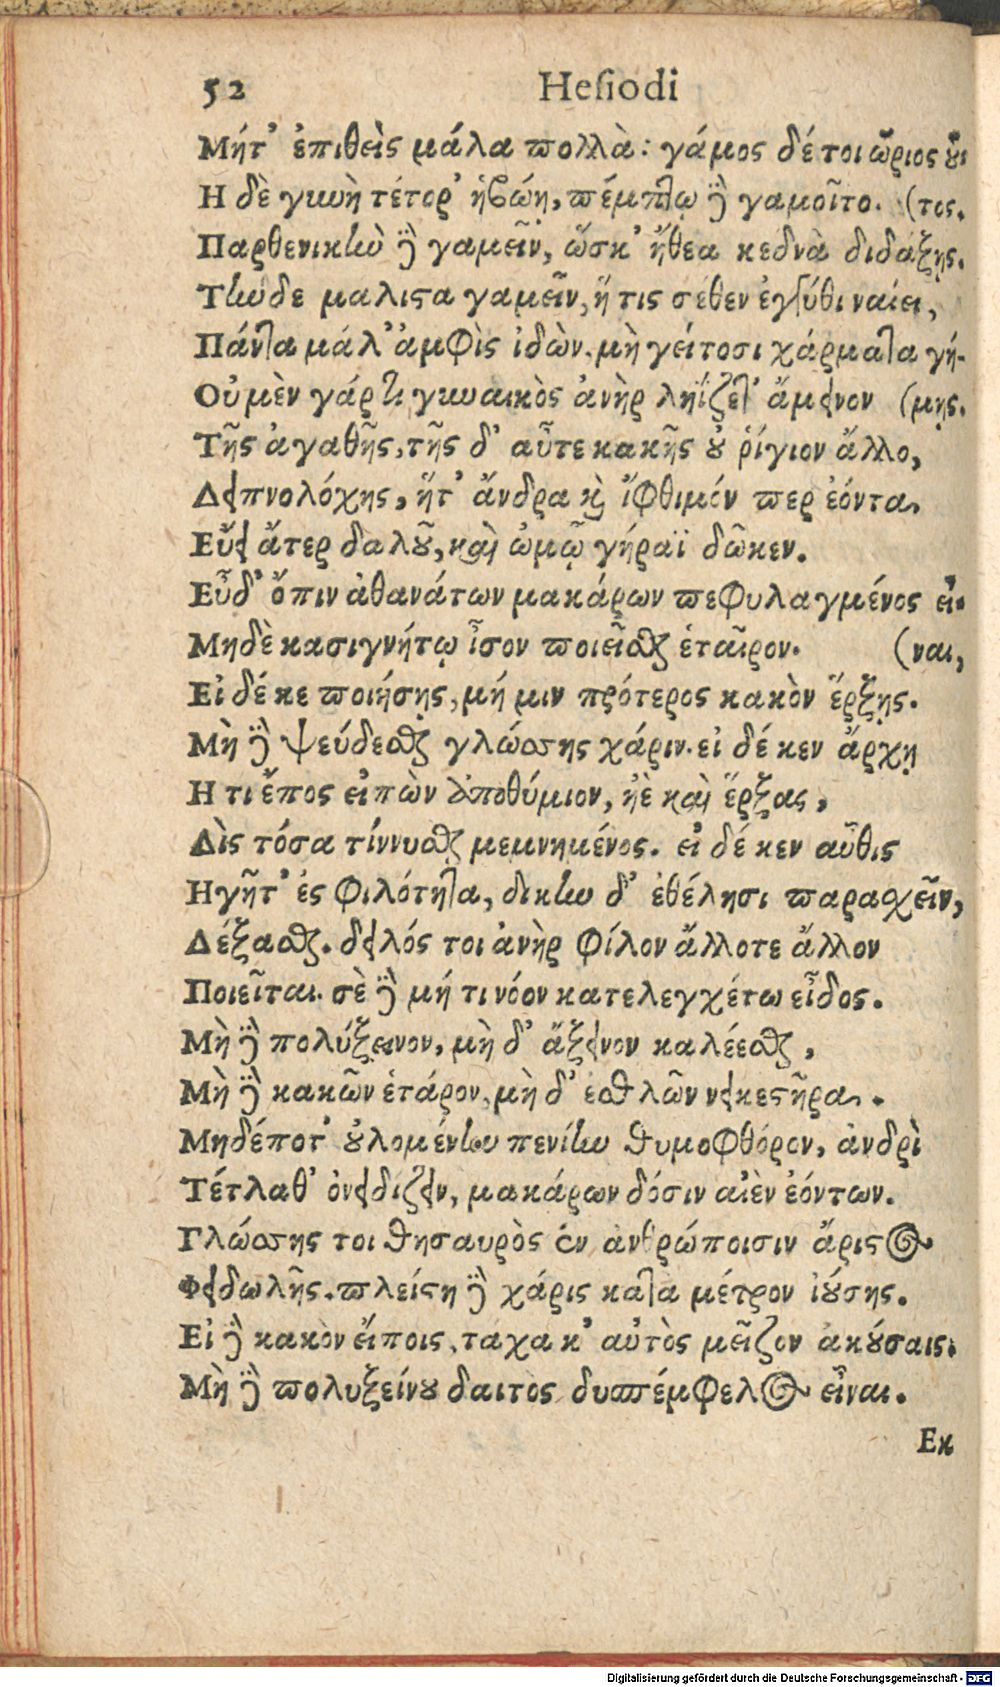 52 Hesiodi
Μήτ' ἐπιθεὶς μάλα πολλὰ: γάμος δέ τοι ὥριος οὗ-
Η δὲ γυνὴ τέτορ' ἡβώη, πέμπτῳ δὲ γαμοῖτο. (τος.
Παρθενικὴν δὲ γαμεῖν, ὥς κ' ἤθεα κεδνὰ διδάξῃς.
Τὴν δε μαλιστα γαμεῖν, ἥ τις σέθεν ἐγγύθι ναίει,
Πάντα μάλ' ἀμφὶς ἰδὼν. μὴ γείτοσι χάρματα γή-
Οὐ μὲν γάρ τι γυναικὸς ἀνὴρ ληΐζετ' ἄμεινον (μῃς.
Τῆς ἀγαθῆς, τῆς δ' αὖτε κακῆς οὐ ῥίγιον ἄλλο,
Δειπνολόχης, ἥτ' ἄνδρα καὶ ἴφθιμόν περ ἐόντα
Εὕει ἄτερ δαλοῦ, καὶ ὠμῷ γήραϊ δῶκεν.
Εὖ δ' ὄπιν ἀθανάτων μακάρων πεφυλαγμένος εἶ-
Μηδὲ κασιγνήτῳ ἶσον ποιεῖσθαι ἑταῖρον. (ναι,
Εἰ δέ κε ποιήσῃς, μή μιν πρότερος κακὸν ἔρξῃς.
Μὴ δὲ ψεύδεσθαι γλώσσης χάριν. εἰ δέ κεν ἄρχῃ
Η τι ἔπος εἰπὼν ἀποθύμιον, ἠὲ καὶ ἔρξας,
Δὶς τόσα τίννυσθαι μεμνημένος. εἰ δέ κεν αὖθις
Ηγῆτ' ἐς φιλότητα, δικην δ' ἐθέλησι παρασχεῖν,
Δέξασθαι. δειλός τοι ἀνὴρ φίλον ἄλλοτε ἄλλον
Ποιεῖται. σὲ δὲ μή τι νόον κατελεγχέτω εἶδος.
Μὴ δὲ πολύξεινον, μὴ δ' ἄξεινον καλέεσθαι,
Μὴ δὲ κακῶν ἑτάρον, μὴ δ' ἐσθλῶν νεικεστῆρα.
Μηδέποτ' οὐλομένην πενίην θυμοφθόρον, ἀνδρὶ
Τέτλαθ' ὀνειδίζειν, μακάρων δόσιν αἰὲν ἐόντων.
Γλώσσης τοι θησαυρὸς ἐν ἀνθρώποισιν ἄριστος
Φειδωλῆς. πλείστη δὲ χάρις κατα μέτρον ἰούσης.
Εἰ δὲ κακὸν εἴποις, τάχα κ' αὐτὸς μεῖζον ἀκούσαις.
Μὴ δὲ πολυξείνου δαιτὸς δυσπέμφελος εἶναι.
Εκ
Digitalisierung gefördert durch die Deutsche Forschungsgemeinschaft - DFG